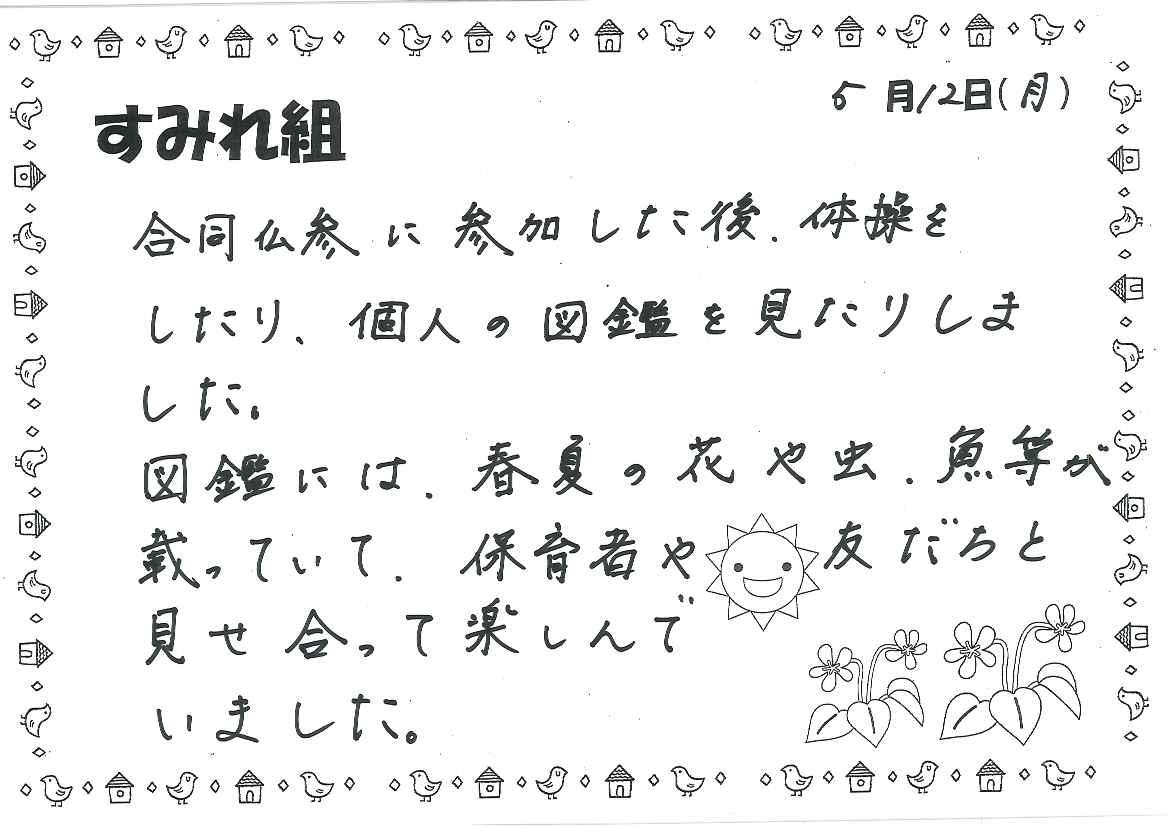 5月12日(月)
すみれ組
合同仏参に参加した後、体操を
したり、個人の図鑑を見たりしま
した。
図鑑には、春夏の花や虫、魚等が
載っていて、保育者や友だちと
見せ合って楽しんで
いました。